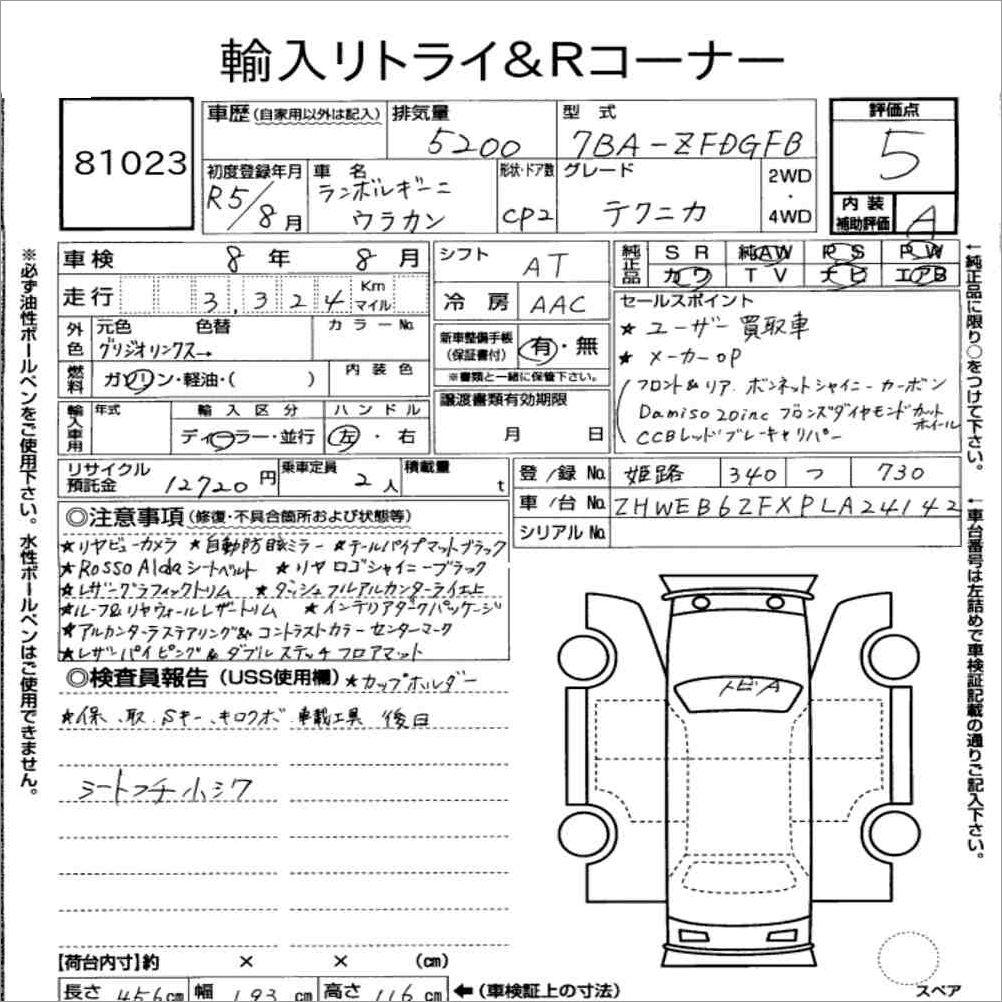 輸入リトライ&Rコーナー
81023
車歴 (自家用以外は記入)
排気量
5200
型式
7BA-ZFDGFB
評価点
5
初度登録年月
R5/8月
車名
ランボルギーニ
ウラカン
形状・ドア数
CP2
グレード
テクニカ
2WD
・
4WD
内装
補助評価
A
車検 8年 8月
シフト AT
純正品
SR 純AW PS PW
カワ TV ナビ エアB
走行 3,324 Km マイル
冷房 AAC
外色
元色 色替
グリジオリンクス→
カラーNo.
新車整備手帳
(保証書付)
有・無
※書類と一緒に保管下さい。
セールスポイント
★ユーザー買取車
★メーカーOP
フロント&リア.ボンネットシャイニーカーボン
Damiso 20inc ブロンズダイヤモンドカットホイール
CCBレッドブレーキャリパー
燃料
ガソリン・軽油・( )
内装色
譲渡書類有効期限
月 日
輸入車用
年式
輸入区分
ディーラー・並行
ハンドル
左・右
リサイクル
預託金
12720円
乗車定員
2人
積載量
t
登/録No. 姫路 340 つ 730
車/台No. ZHWEB6ZFXPLA24142
シリアルNo.
◎注意事項 (修復・不具合箇所および状態等)
★リヤビューカメラ ★自動防眩ミラー ★テールパイプマットブラック
★Rosso Aldaシートベルト ★リヤロゴシャイニーブラック
★レザーグラフィックトリム ★ダッシュフルアルカンターラ仕上
★ルーフ&リヤウォールレザートリム ★インテリアダークパッケージ
★アルカンターラステアリング& コントラストカラーセンターマーク
★レザーパイピング&ダブルステッチフロアマット
◎検査員報告 (USS使用欄) ★カップホルダー
★保、取、Sキー、キロクボ、車載工具 後日
シートフチ小シワ
トビA
【荷台内寸】約 × × (cm)
長さ 456cm 幅 193cm 高さ 116cm ←(車検証上の寸法)
スペア
※必ず油性ボールペンをご使用下さい。水性ボールペンはご使用できません。
←純正品に限り○をつけて下さい。
←車台番号は左詰めで車検証記載の通りご記入下さい。